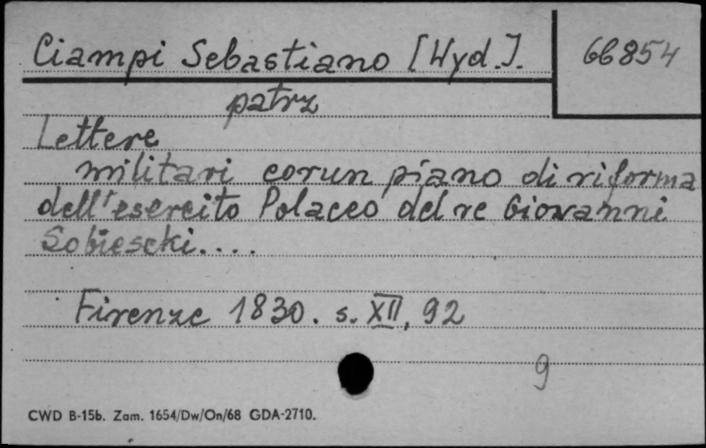 Ciampi Sebastiano [Wyd.].
66854
patrz
Lettere
militari corun piano di riforma
dell'esercito Polacco del re Giovanni
Sobiescki....
Firenze 1830. s. XII, 92
9
CWD B-15b. Zam. 1654/Dw/On/68 GDA-2710.